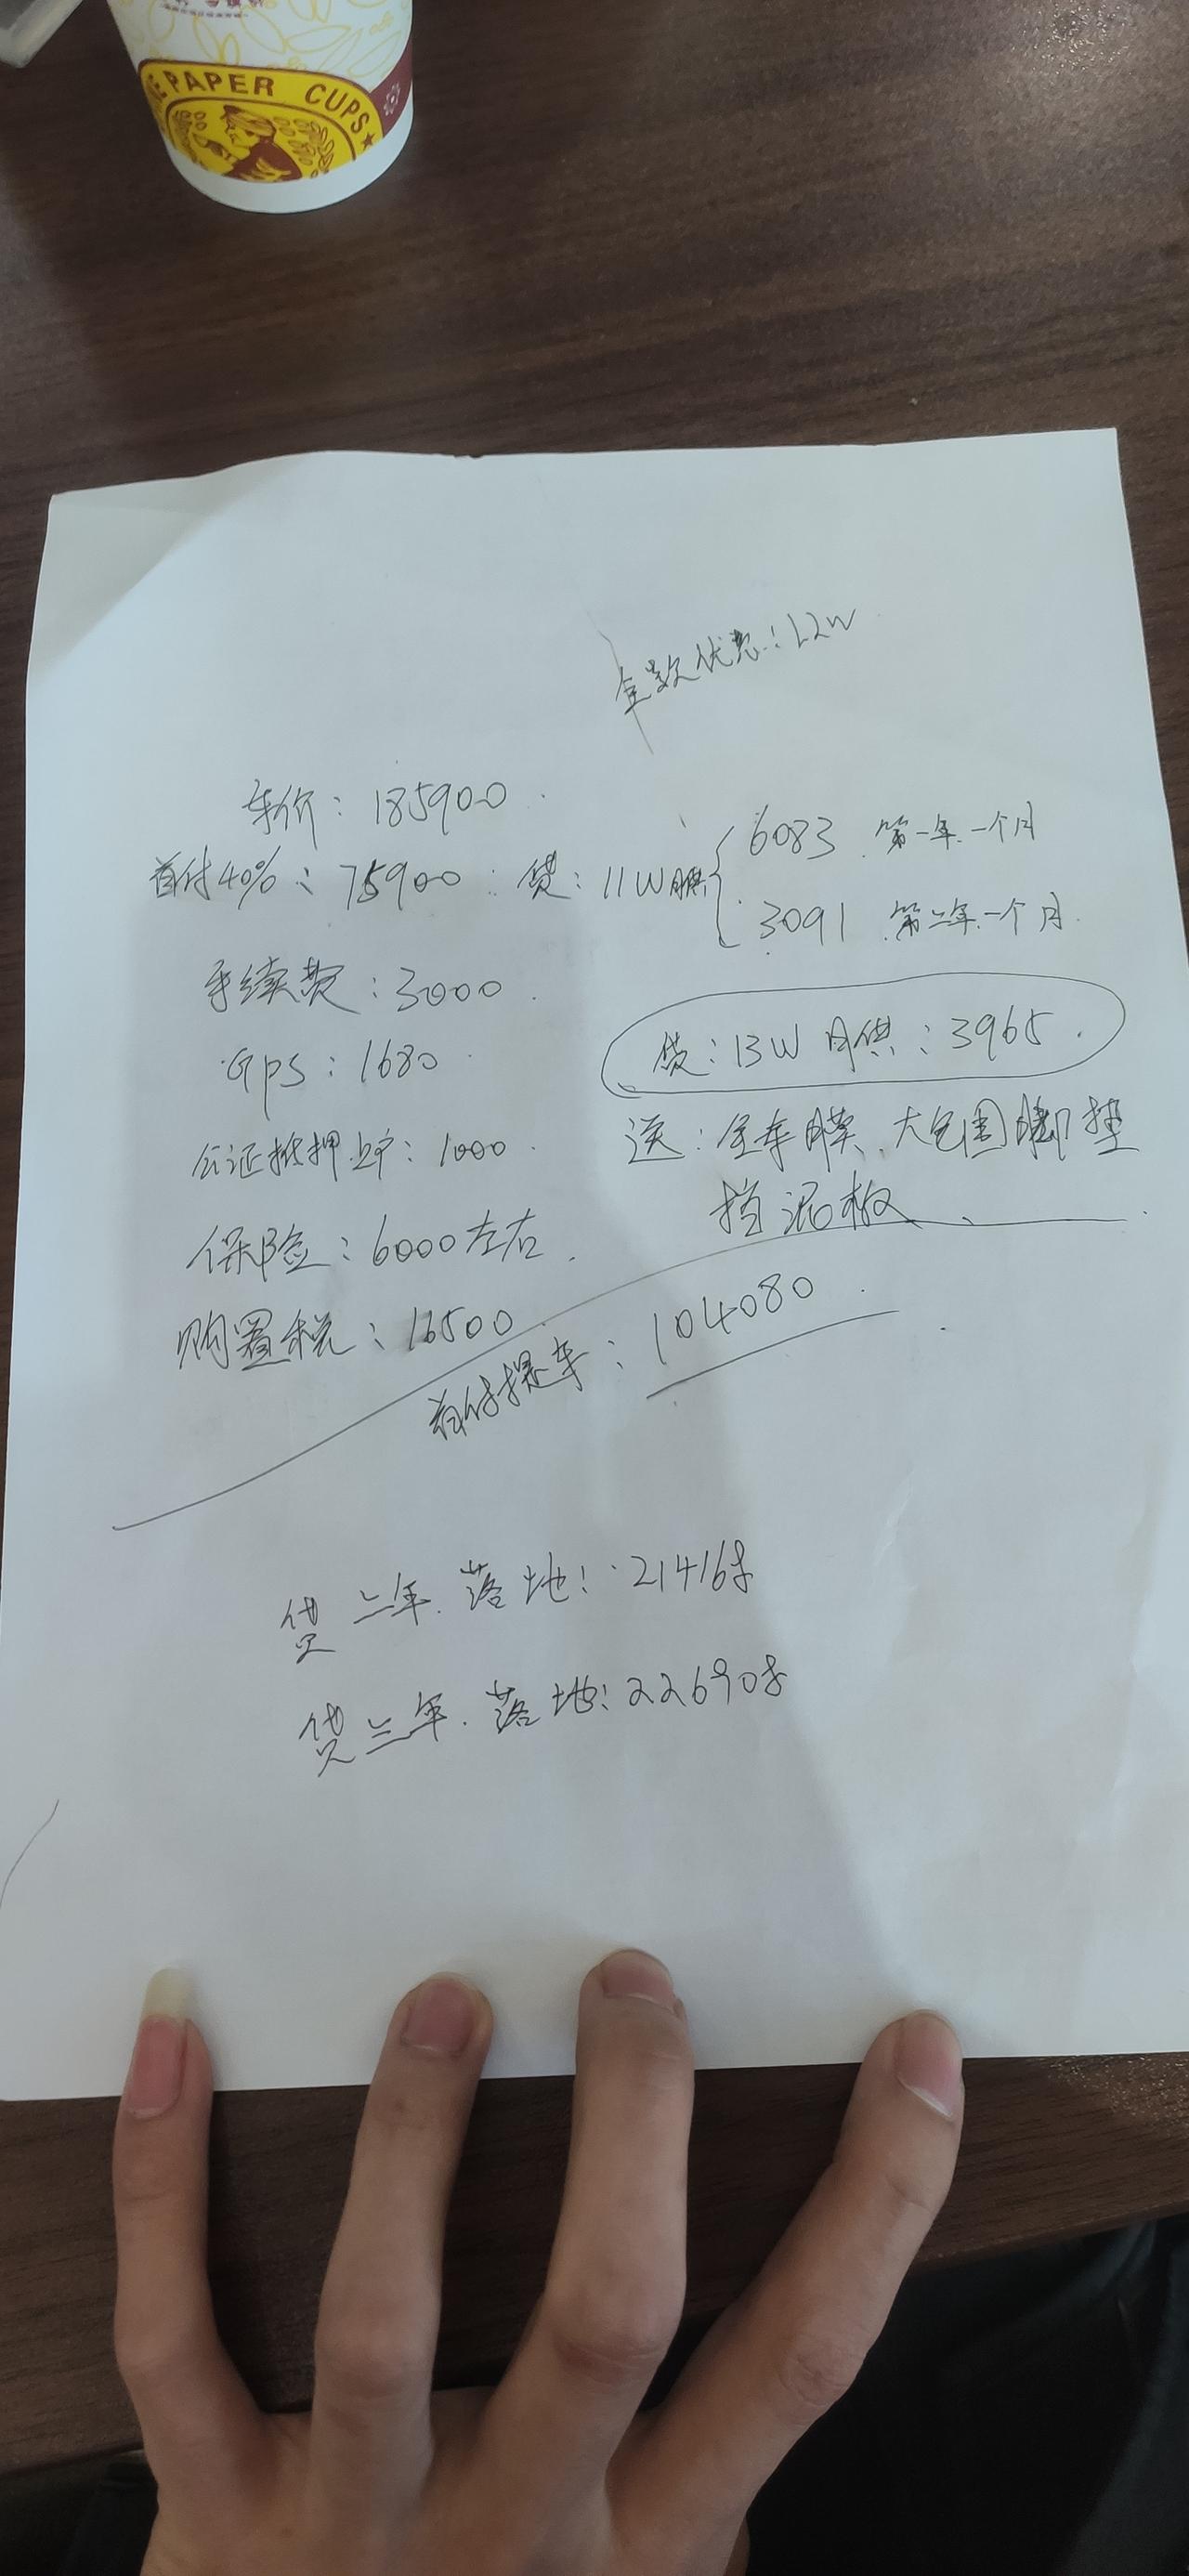 PAPER CUPS
全款优惠:1.2W
车价:185900
首付40%:75900 贷:11W月供 6083 第一年一个月
3091 第二年一个月
手续费:3000
贷:13W月供:3965
GPS:1680
送:全车膜、大包围脚垫
挡泥板
公证抵押上户:1000
保险:6000左右
购置税:16500
首付提车:104080
贷二年.落地:214168
贷三年.落地:226908